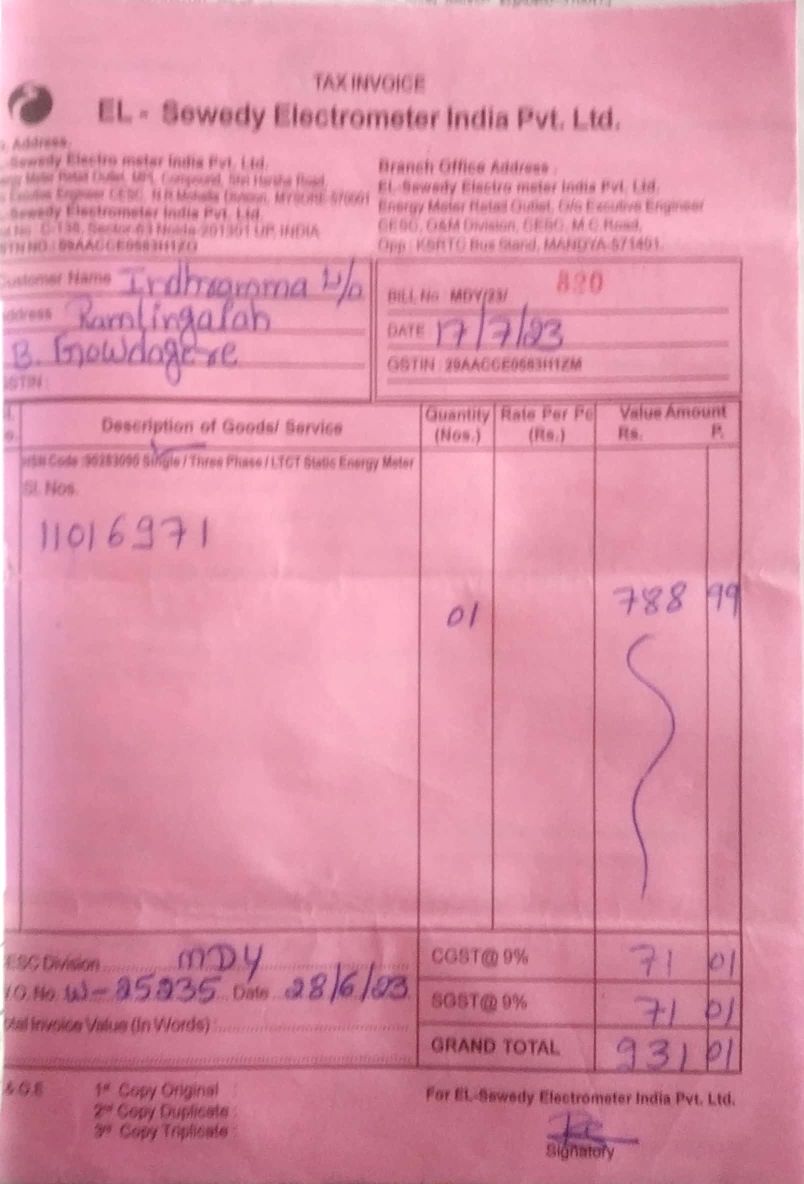 TAX INVOICE
EL - Sewedy Electrometer India Pvt. Ltd.
Address.
Sewedy Electro meter India Pvt. Ltd.
Energy Meter Retail Outlet, MPL Compound, Shri Harsha Road,
Executive Engineer CESC, N.R Mohalla Division, MYSORE-570001
Sewedy Electrometer India Pvt. Ltd.
C-138, Sector-63 Noida-201301 UP, INDIA
Branch Office Address :
EL-Sewedy Electro meter India Pvt. Ltd.
Energy Meter Retail Outlet, O/o Excutive Engineer
CESC, O&M Division, CESC, M.C Road,
Opp : KSRTC Bus Stand, MANDYA-571401.
Customer Name
Address Ramlingaiah
B. Gowdagere
GSTIN :
BILL No : MDY/23/ 820
DATE 17/7/23
GSTIN : 29AACCE0583H1ZM
Description of Goods/ Service
Quantity (Nos.)
Rate Per Pc (Rs.)
Value Amount
Rs. P.
HSN Code :90283090 Single / Three Phase / LTCT Static Energy Meter
Sl. Nos.
11016971
01 788 99
ESC Division MDY
W-25235 Date 28/6/23
Total Invoice Value (In Words) :
CGST@ 9% 71 01
SGST@ 9% 71 01
GRAND TOTAL 931 01
& O.E
1st Copy Original :
2nd Copy Duplicate :
3rd Copy Triplicate :
For EL-Sewedy Electrometer India Pvt. Ltd.
Signatory